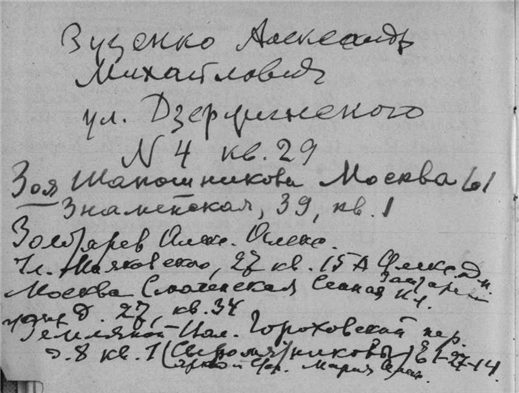 Зузенко Александр
Михайлович
ул. Дзержинского
N 4 кв. 29
Зоя Шапошникова Москва 61
Знаменская, 39, кв. 1
Золотарев Олекс. Олекс.
Ул. Маяковского, 27 кв. 15А
Москва Смоленская Сенная
д. 27, кв. 34
Земляной Вал. Гороховский пер.
д. 8 кв. 1 (Сыромятниковы) Е 1-27-14.
Мария